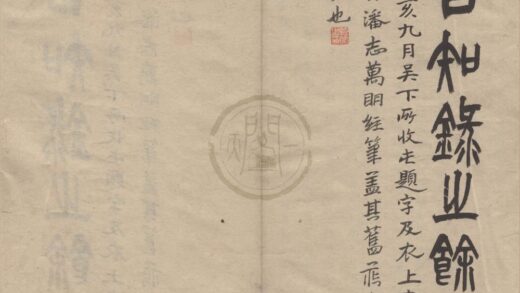 知錄之餘
亥九月吳下所收㞢題字及衣上
潘志萬明經筆蓋其舊藏
也